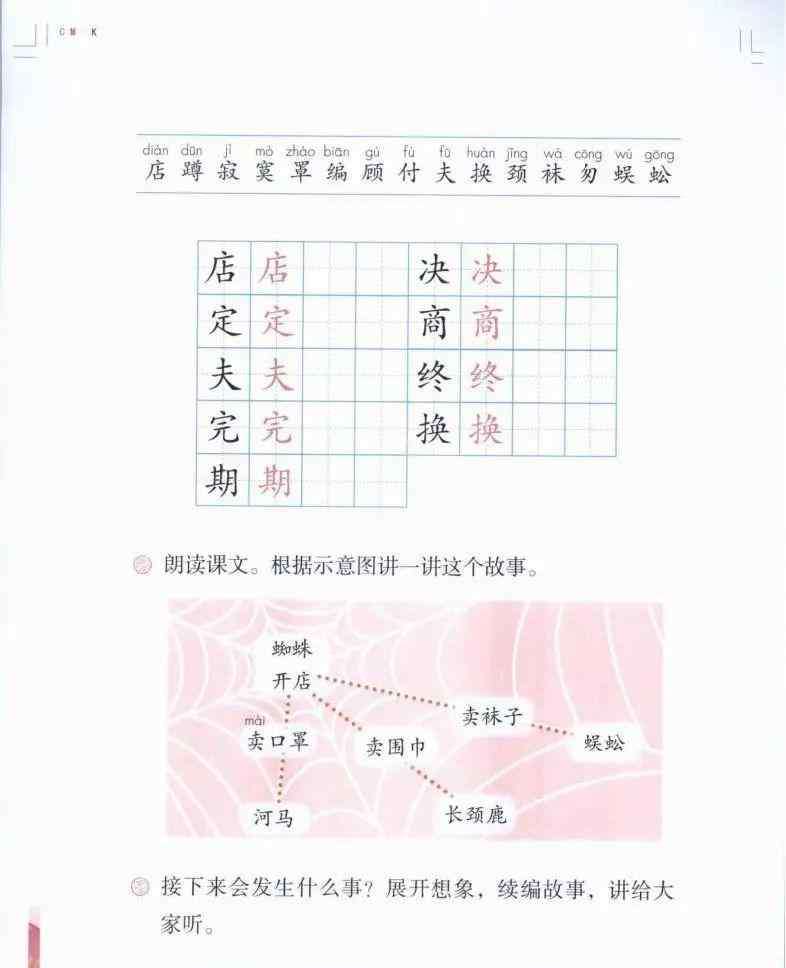 CM K
diàn dūn jì mò zhào biān gù fù fū huàn jǐng wà cōng wú gōng
店 蹲 寂 寞 罩 编 顾 付 夫 换 颈 袜 匆 蜈 蚣
店 店 决 决
定 定 商 商
夫 夫 终 终
完 完 换 换
期 期
朗读课文。根据示意图讲一讲这个故事。
蜘蛛
开店
卖袜子
mài
卖口罩
卖围巾
蜈蚣
河马
长颈鹿
接下来会发生什么事？展开想象，续编故事，讲给大
家听。